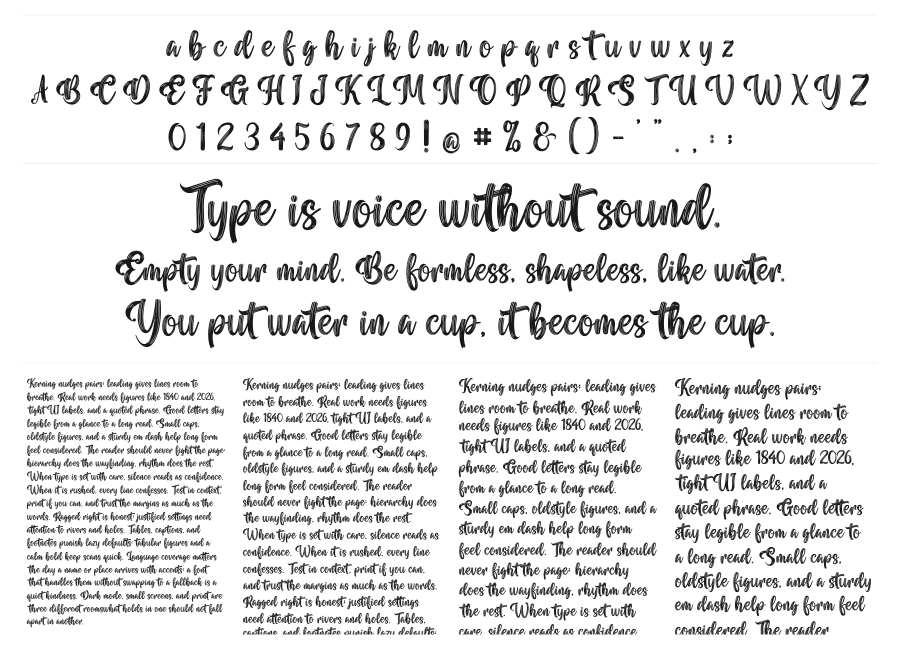 a b c d e f g h i j k l m n o p q r s t u v w x y z
A B C D E F G H I J K L M N O P Q R S T U V W X Y Z
0 1 2 3 4 5 6 7 8 9 ! @ # % & ( ) - ' " . , : ;
Type is voice without sound.
Empty your mind. Be formless, shapeless, like water.
You put water in a cup, it becomes the cup.
Kerning nudges pairs; leading gives lines room to
breathe. Real work needs figures like 1840 and 2026,
tight UI labels, and a quoted phrase. Good letters stay
legible from a glance to a long read. Small caps,
oldstyle figures, and a sturdy em dash help long form
feel considered. The reader should never fight the page;
hierarchy does the wayfinding, rhythm does the rest.
When type is set with care, silence reads as confidence.
When it is rushed, every line confesses. Test in context,
print if you can, and trust the margins as much as the
words. Ragged right is honest; justified settings need
attention to rivers and holes. Tables, captions, and
footnotes punish lazy defaults; tabular figures and a
calm bold keep scans quick. Language coverage matters
the day a name or place arrives with accents; a font
that handles them without swapping to a fallback is a
quiet kindness. Dark mode, small screens, and print are
three different rooms; what holds in one should not fall
apart in another.
Kerning nudges pairs; leading gives lines
room to breathe. Real work needs figures
like 1840 and 2026, tight UI labels, and a
quoted phrase. Good letters stay legible
from a glance to a long read. Small caps,
oldstyle figures, and a sturdy em dash help
long form feel considered. The reader
should never fight the page; hierarchy does
the wayfinding, rhythm does the rest.
When type is set with care, silence reads as
confidence. When it is rushed, every line
confesses. Test in context, print if you can,
and trust the margins as much as the words.
Ragged right is honest; justified settings
need attention to rivers and holes. Tables,
captions, and footnotes punish lazy defaults;
Kerning nudges pairs; leading gives
lines room to breathe. Real work
needs figures like 1840 and 2026,
tight UI labels, and a quoted
phrase. Good letters stay legible
from a glance to a long read.
Small caps, oldstyle figures, and a
sturdy em dash help long form
feel considered. The reader should
never fight the page; hierarchy
does the wayfinding, rhythm does
the rest. When type is set with
care, silence reads as confidence.
Kerning nudges pairs;
leading gives lines room to
breathe. Real work needs
figures like 1840 and 2026,
tight UI labels, and a
quoted phrase. Good letters
stay legible from a glance to
a long read. Small caps,
oldstyle figures, and a sturdy
em dash help long form feel
considered. The reader